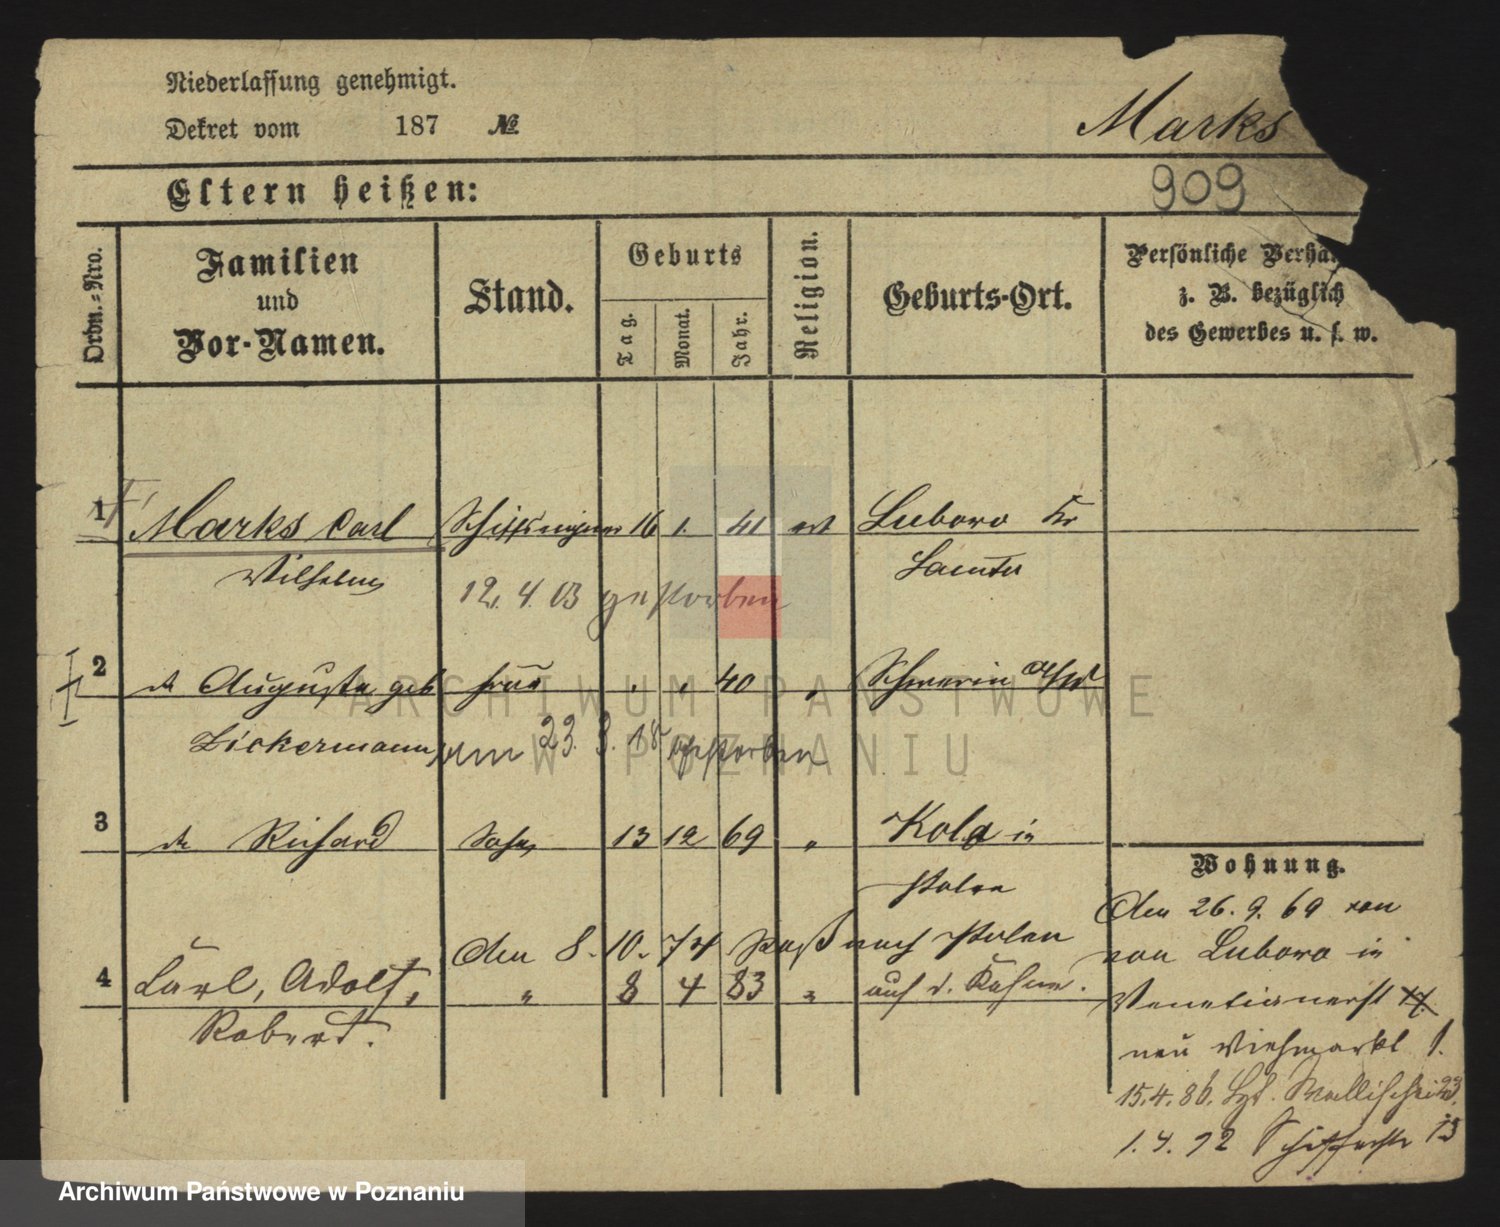 Niederlassung genehmigt.
Dekret vom 187 №
Marks
909
Eltern heißen:
Ordn.-Nro.
Familien
und
Vor-Namen.
Stand.
Geburts
Tag.
Monat.
Jahr.
Religion.
Geburts-Ort.
Persönliche Verhä
z. B. bezüglich
des Gewerbes u. s. w.
1 Marks Carl 16 1. 41 ev Luboro Kr
Wilhelm Samter
12. 4. 03 gestorben
2 Auguste geb Frau 40 " Schwerin a/W
Dickermann am 23. 3. 18 gestorben
3 Richard Sohn 13 12 69 " Kolo in
Polen
Wohnung.
Den 26. 9. 69 von
den 8. 10. 74 Paß nach Polen
von Luboro in
4 Carl, Adolf, " 8 4 83 " auf d. Kahne.
Robert.
Venetianerst
neu Viehmarkt 1.
15. 4. 86. Wallischei 23.
1. 4. 92 13
ARCHIWUM PAŃSTWOWE
W POZNANIU
Archiwum Państwowe w Poznaniu